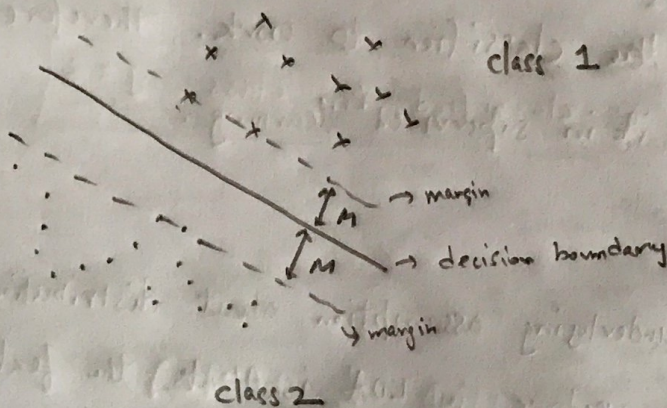 class 1
margin
M
decision boundary
M
margin
class 2